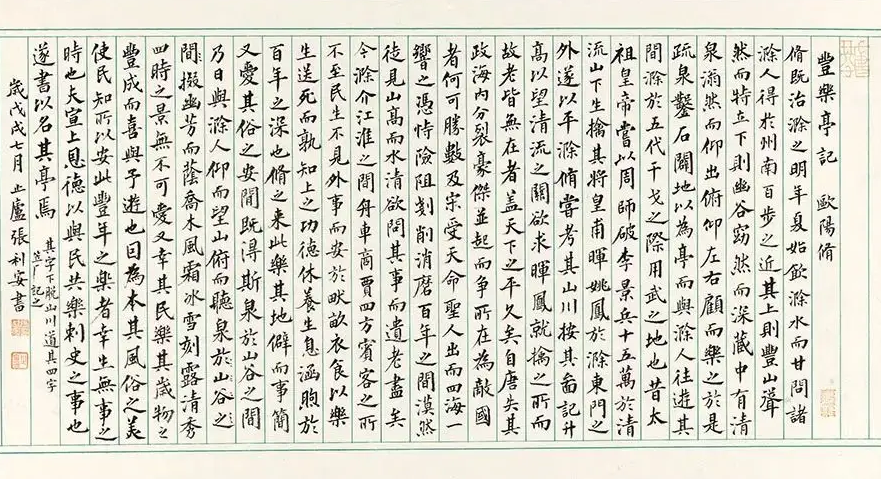 豐樂亭記 歐陽脩
脩既治滁之明年夏始飲滁水而甘問諸
滁人得於州南百步之近其上則豐山聳
然而特立下則幽谷窈然而深藏中有清
泉滃然而仰出俯仰左右顧而樂之於是
疏泉鑿石闢地以為亭而與滁人往遊其
間滁於五代干戈之際用武之地也昔太
祖皇帝嘗以周師破李景兵十五萬於清
流山下生擒其將皇甫暉姚鳳於滁東門之
外遂以平滁脩嘗考其山川按其啚記升
高以望清流之關欲求暉鳳就擒之所而
故老皆無在者蓋天下之平久矣自唐失其
政海內分裂豪傑並起而爭所在為敵國
者何可勝數及宋受天命聖人出而四海一
嚮之憑恃險阻剗削消磨百年之間漠然
徒見山高而水清欲問其事而遺老盡矣
今滁介江淮之間舟車商賈四方賓客之所
不至民生不見外事而安於畎畝衣食以樂
生送死而孰知上之功德休養生息涵煦於
百年之深也脩之來此樂其地僻而事簡
又愛其俗之安閒既得斯泉於山谷之間
乃日與滁人仰而望山俯而聽泉於山谷之
間掇幽芳而蔭喬木風霜冰雪刻露清秀
四時之景無不可愛又幸其民樂其歲物之
豐成而喜與予遊也因為本其風俗之美
使民知所以安此豐年之樂者幸生無事之
時也夫宣上恩德以與民共樂刺史之事也
遂書以名其亭焉
其字下脫山川道其四字
記之
歲戊戌七月止廬張利安書